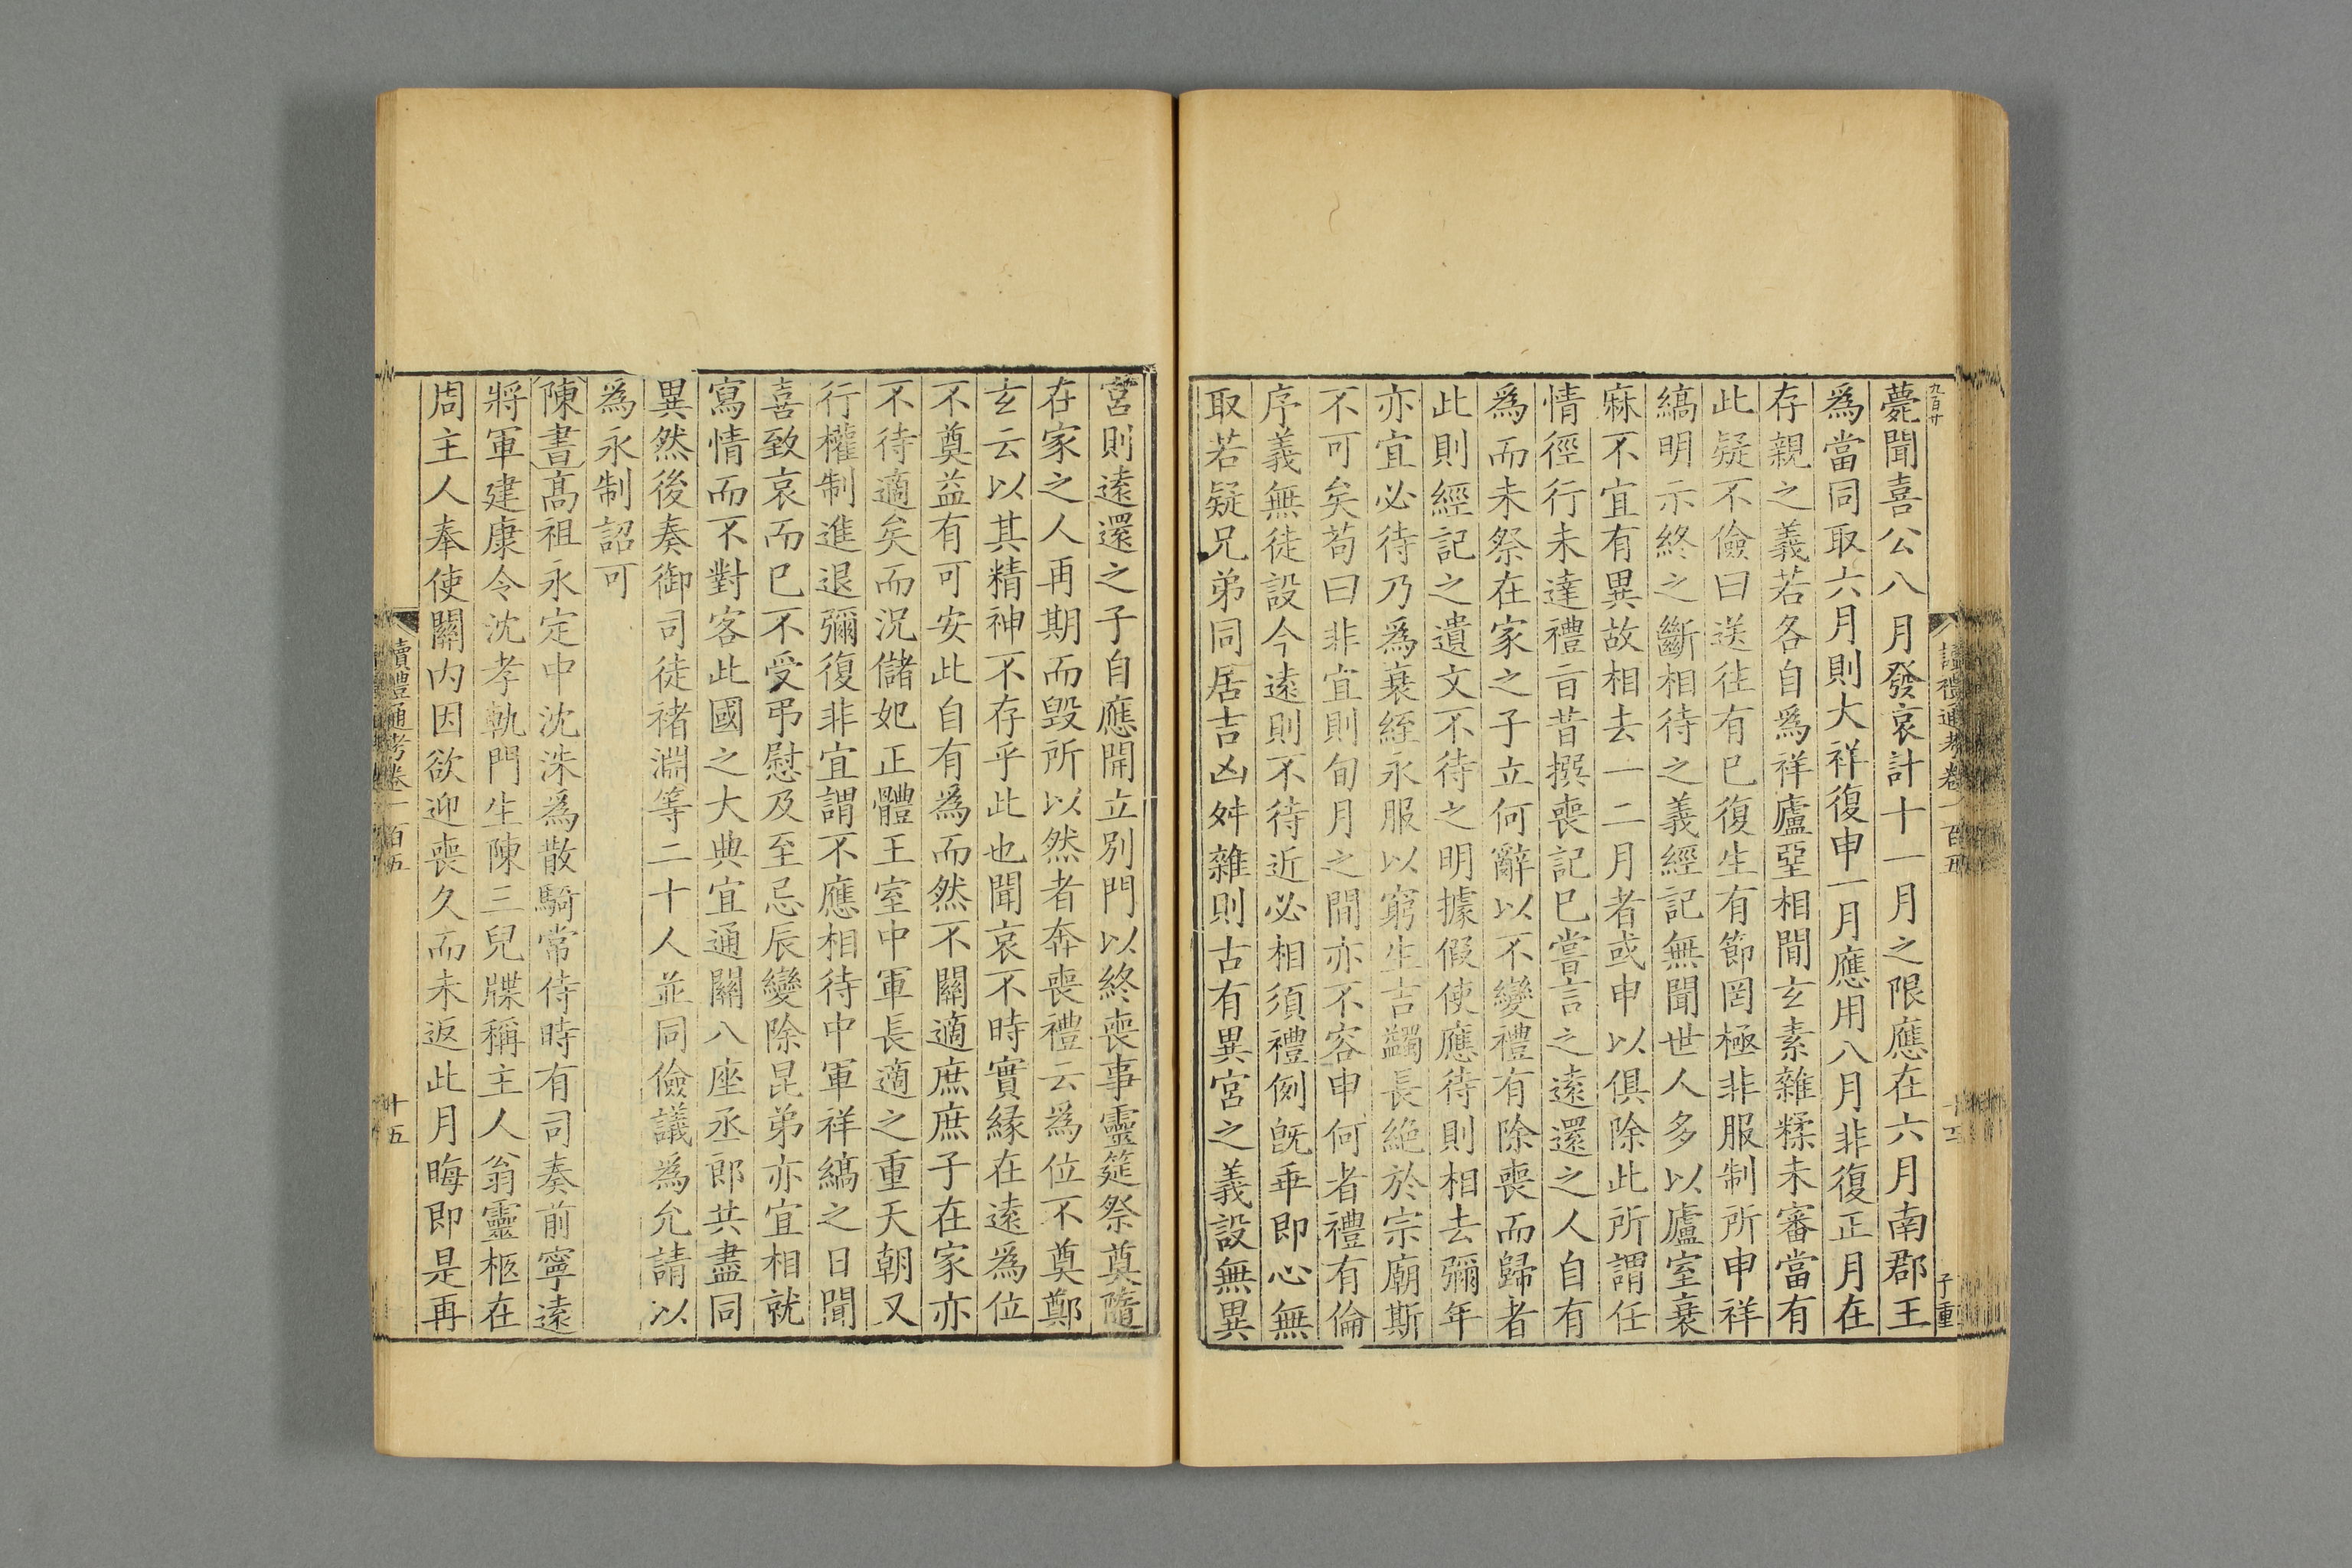 九百廿
薨聞喜公八月發哀計十一月之限應在六月南郡王
爲當同取六月則大祥復申一月應用八月非復正月在
存親之義若各自爲祥廬堊相間玄素雜糅未審當有
此疑不儉曰送往有已復生有節罔極非服制所申祥
縞明示終之斷相待之義經記無聞世人多以廬室衰
麻不宜有異故相去一二月者或申以俱除此所謂任
情徑行未達禮㫖昔撰喪記巳嘗言之遠還之人自有
爲而未祭在家之子立何辭以不變禮有除喪而歸者
此則經記之遺文不待之明據假使應待則相去彌年
亦宜必待乃爲衰絰永服以窮生吉蠲長絶於宗廟斯
不可矣苟曰非宜則旬月之間亦不容申何者禮有倫
序義無徒設今遠則不待近必相須禮例旣乖即心無
取若疑兄弟同居吉凶舛雜則古有異宮之義設無異
讀禮通考卷一百五
子重
宮則遠還之子自應開立別門以終喪事靈筵祭奠隨
在家之人再期而毀所以然者奔喪禮云爲位不奠鄭
玄云以其精神不存乎此也聞哀不時實縁在遠爲位
不奠益有可安此自有爲而然不關適庶庶子在家亦
不待適矣而況儲妃正體王室中軍長適之重天朝又
行權制進退彌復非宜謂不應相待中軍祥縞之日聞
喜致哀而巳不受弔慰及至忌辰變除昆弟亦宜相就
寫情而不對客此國之大典宜通關八座丞郎共盡同
異然後奏御司徒褚淵等二十人並同儉議爲允請以
爲永制詔可
陳書高祖永定中沈洙爲散騎常侍時有司奏前寧遠
將軍建康令沈孝軌門生陳三兒牒稱主人翁靈柩在
周主人奉使關内因欲迎喪久而未返此月晦即是再
讀禮通考卷一百五
十五